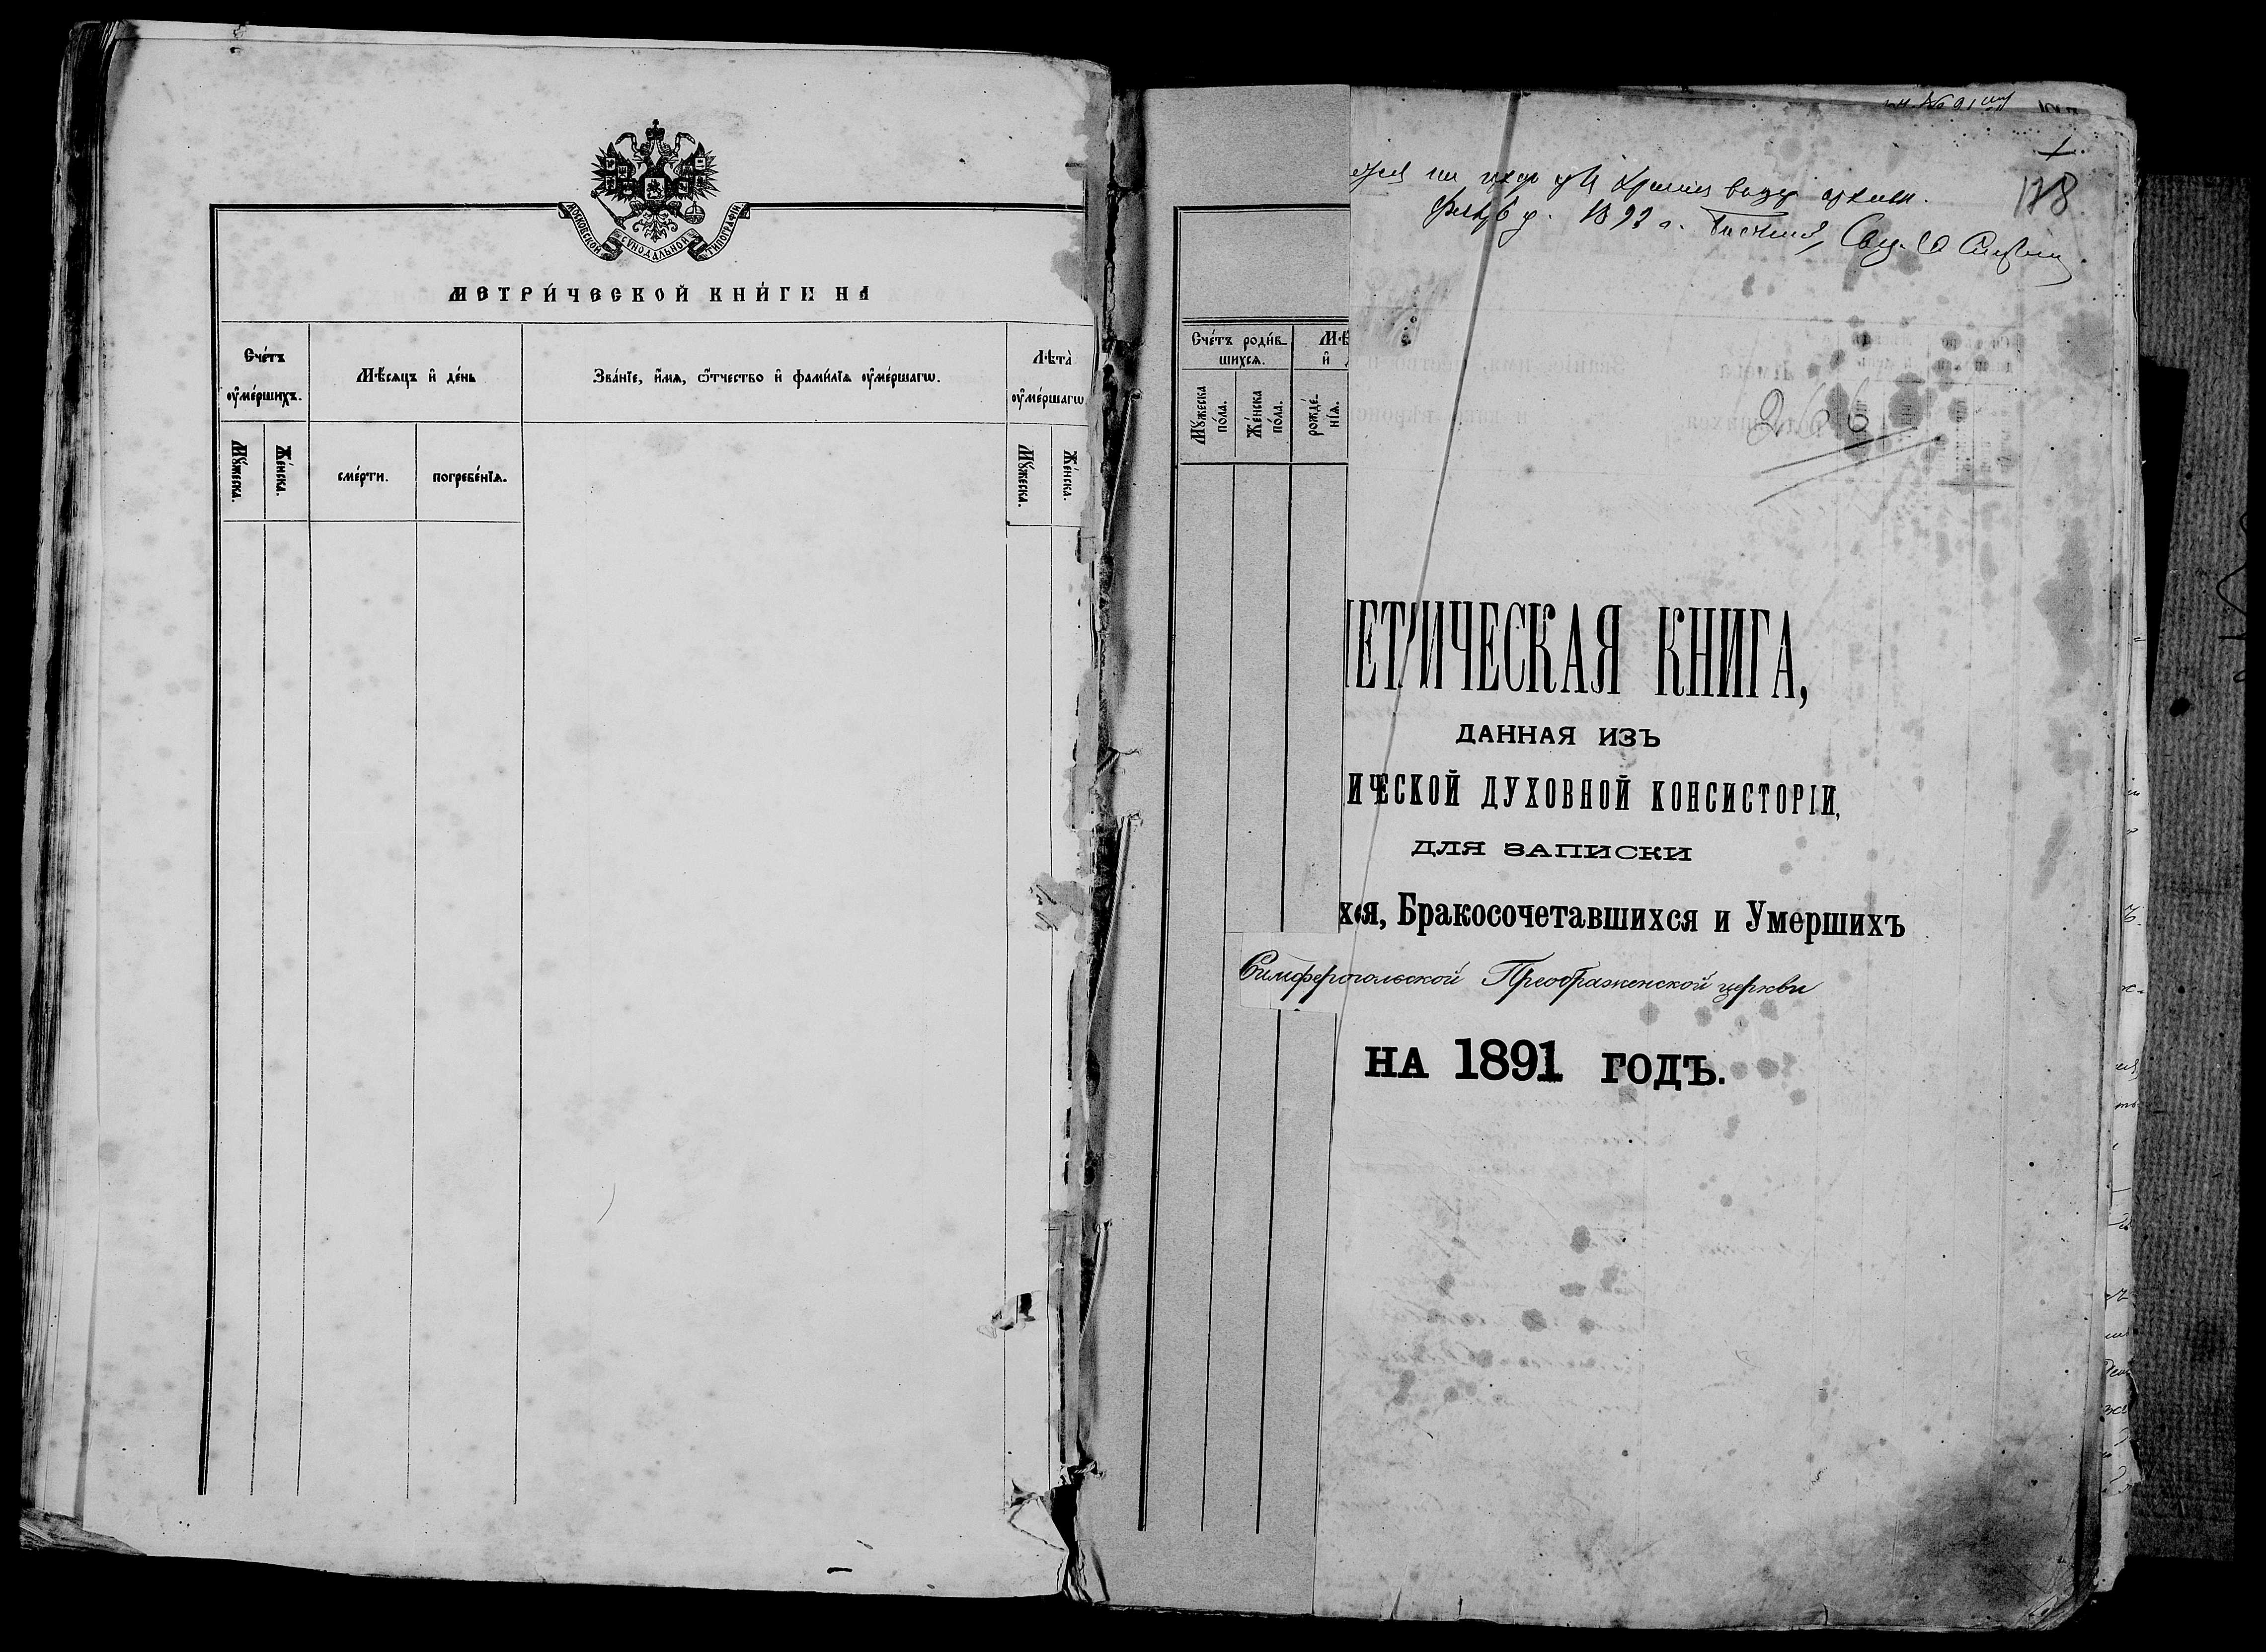 МОСКОВСКОЙ СѴНОДАЛЬНОЙ ТИПОГРАФІИ
МЕТРИ́ЧЕСКОЙ КНИ́ГИ НА
Сче́тъ ᲂу҆ме́ршихъ.
Мѣ́сяцъ и҆ де́нь
Зва́нїе, и҆́мѧ, ѻ҆́тчество и҆ фами́лїѧ ᲂу҆ме́ршагѡ.
Лѣ́та ᲂу҆ме́ршагѡ
Мꙋ́жеска.
Же́нска.
сме́рти.
погребе́нїѧ.
Мꙋ́жеска.
Же́нска.
Сче́тъ роди́в-
шихсѧ.
Мꙋ́жеска по́ла.
Же́нска по́ла.
рожде́-
нїѧ.
178
1892 г.
266
ЕТРИЧЕСКАЯ КНИГА,
ДАННАЯ ИЗЪ
ИЧЕСКОЙ ДУХОВНОЙ КОНСИСТОРІИ,
ДЛЯ ЗАПИСКИ
хся, Бракосочетавшихся и Умершихъ
Симферопольской Преображенской церкви
НА 1891 ГОДЪ.